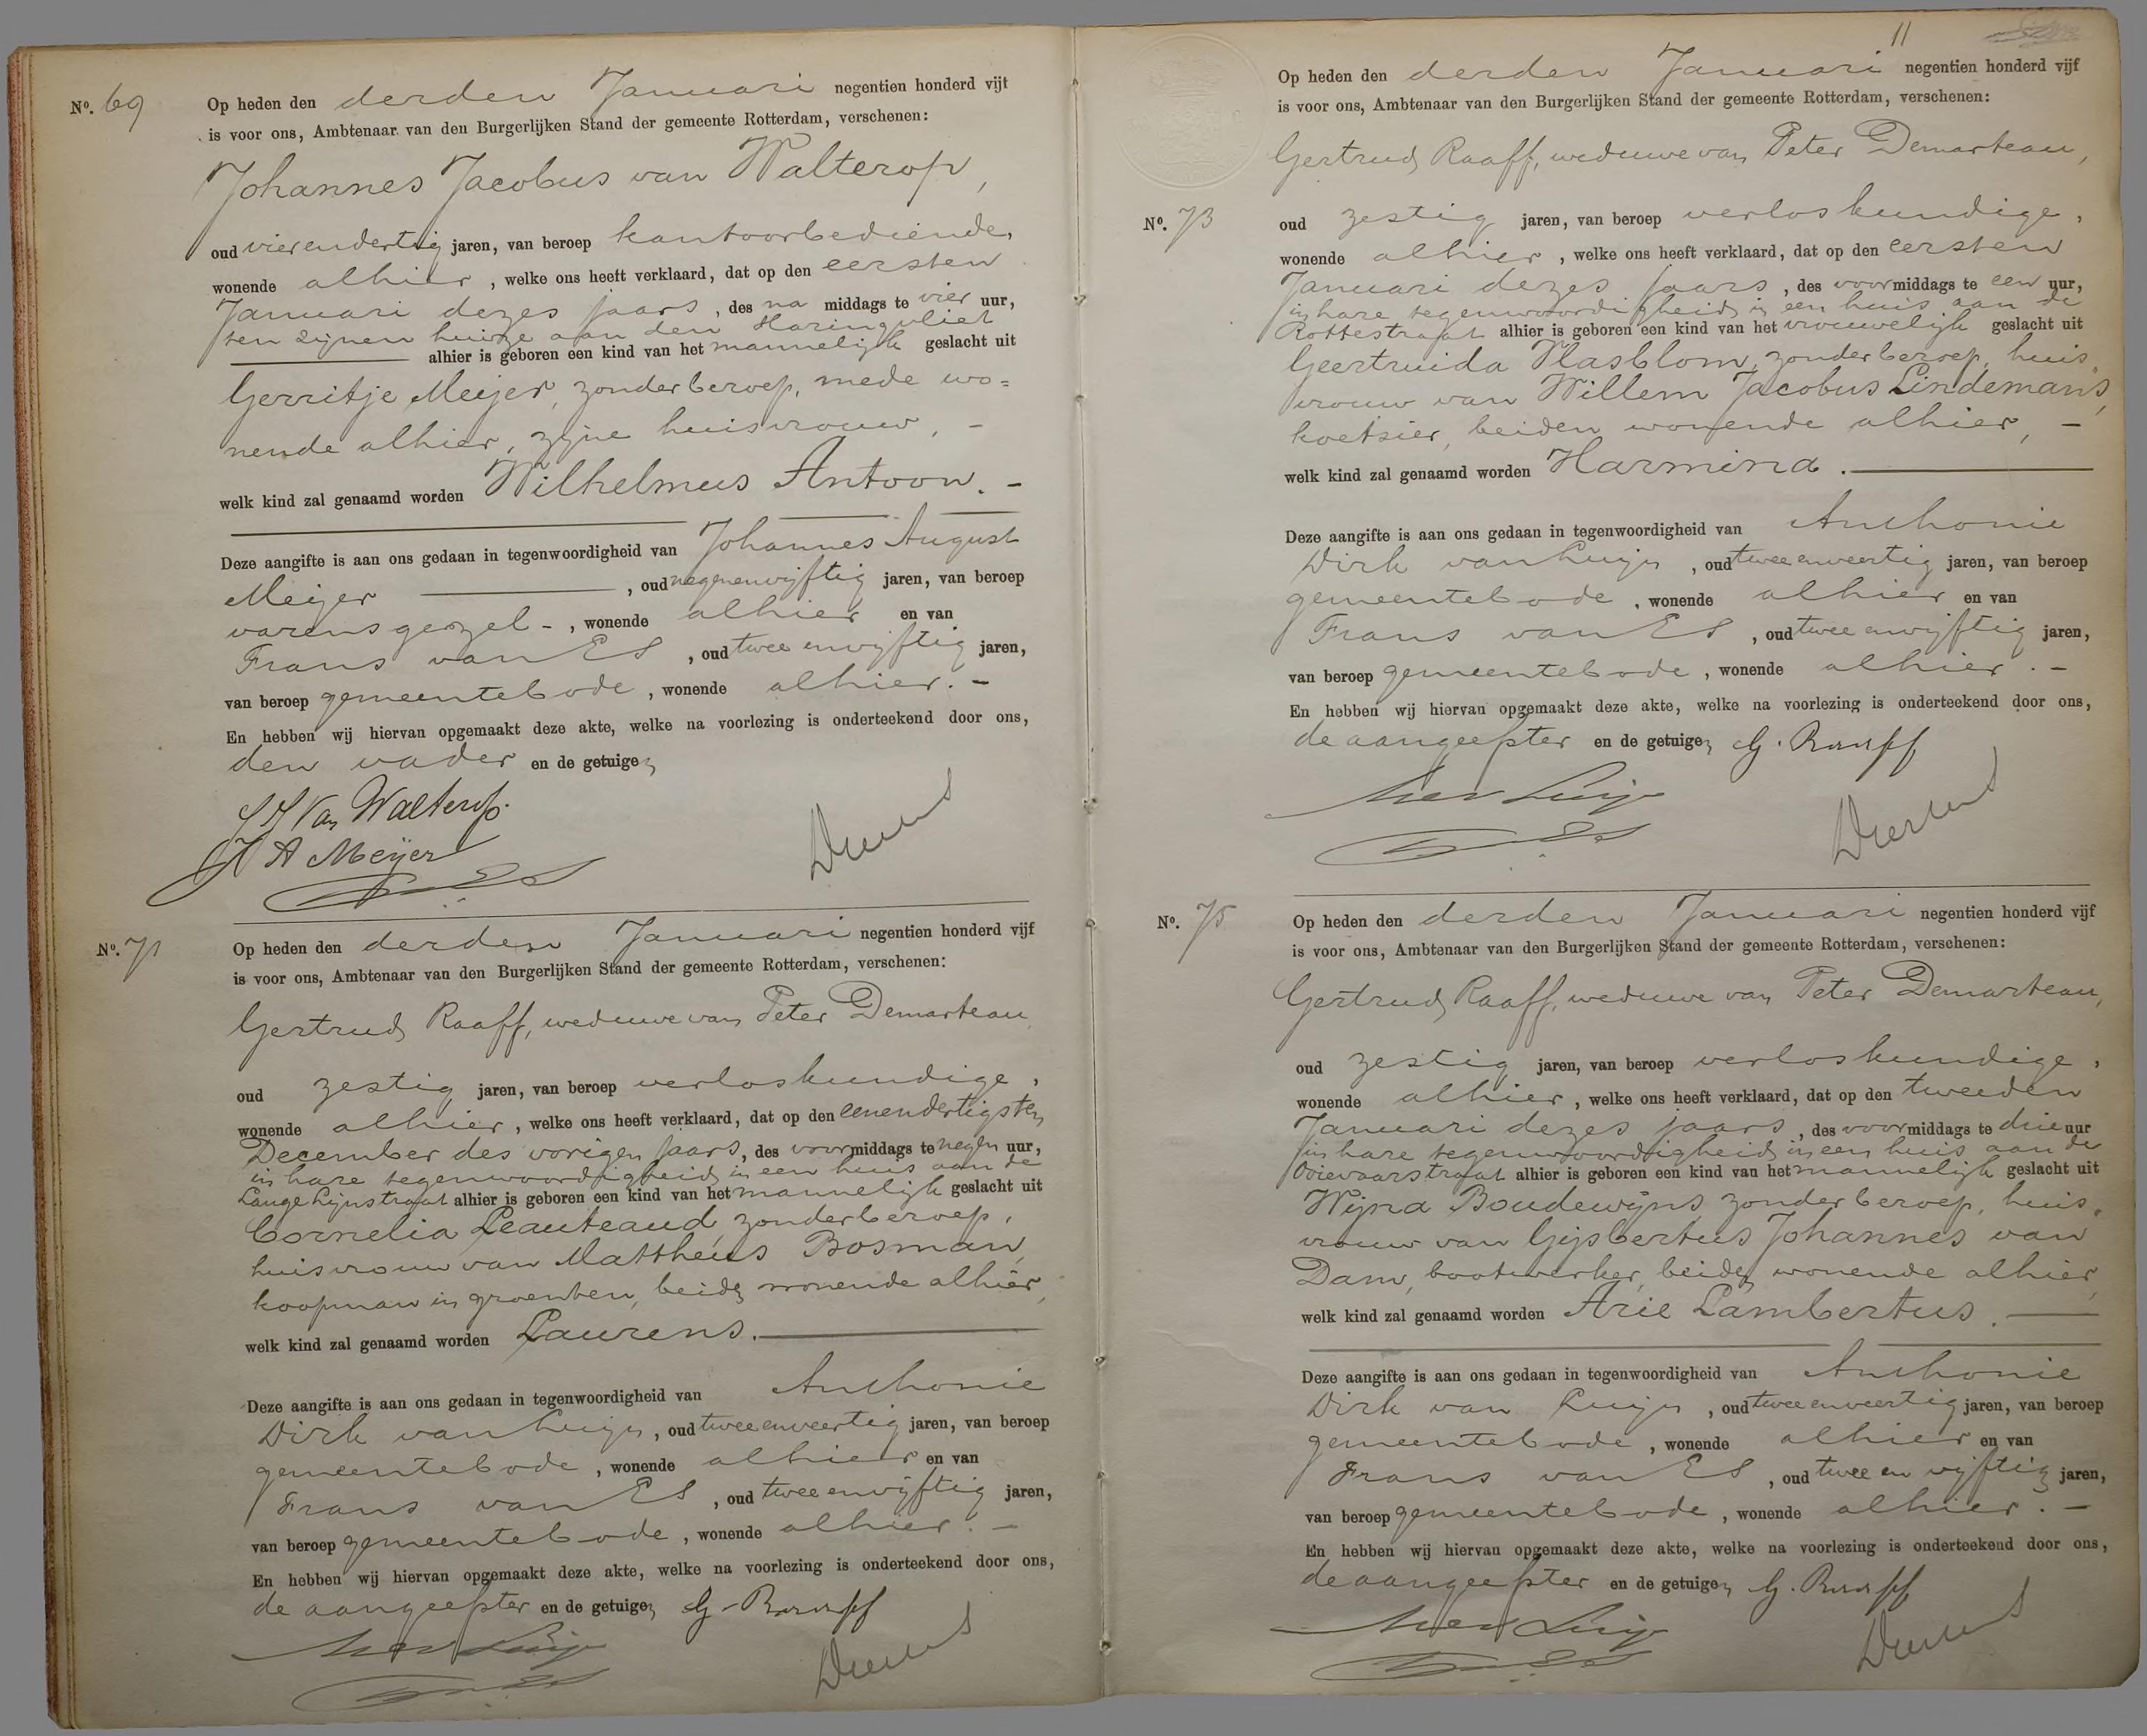 Nº. 69
Op heden den derden Januari negentien honderd vijf
is voor ons, Ambtenaar van den Burgerlijken Stand der gemeente Rotterdam, verschenen:
Johannes Jacobus van Walterop,
oud vierendertig jaren, van beroep kantoorbediende,
wonende alhier, welke ons heeft verklaard, dat op den eersten
Januari dezes jaars, des namiddags te vier uur,
ten zijnen huize aan den Haringvliet
alhier is geboren een kind van het mannelijk geslacht uit
Gerritje Meijer, zonder beroep, mede wo=
nende alhier, zijne huisvrouw, -
welk kind zal genaamd worden Wilhelmus Antoon. -
Deze aangifte is aan ons gedaan in tegenwoordigheid van Johannes August
Meijer, oud negenenvijftig jaren, van beroep
varensgezel -, wonende alhier en van
Frans van Es, oud twee envijftig jaren,
van beroep gemeentebode, wonende alhier. -
En hebben wij hiervan opgemaakt deze akte, welke na voorlezing is onderteekend door ons,
den vader en de getuigen
J J Van Walterop.
J A Meÿer
Nº. 71
Op heden den derden Januari negentien honderd vijf
is voor ons, Ambtenaar van den Burgerlijken Stand der gemeente Rotterdam, verschenen:
Gertrud Raaff, weduwe van Peter Demarteau,
oud zestig jaren, van beroep verloskundige,
wonende alhier, welke ons heeft verklaard, dat op den eenendertigsten
December des vorigen jaars, des voormiddags te negen uur,
in hare tegenwoordigheid in een huis aan de
Lange Lijnstraat alhier is geboren een kind van het mannelijk geslacht uit
Cornelia Leauteaud, zonder beroep,
huisvrouw van Mattheus Bosman,
koopman in groenten, beiden wonende alhier,
welk kind zal genaamd worden Laurens.
Deze aangifte is aan ons gedaan in tegenwoordigheid van Anthonie
Dirk van Luijn, oud tweeenveertig jaren, van beroep
gemeentebode, wonende alhier en van
Frans van Es, oud twee envijftig jaren,
van beroep gemeentebode, wonende alhier. -
En hebben wij hiervan opgemaakt deze akte, welke na voorlezing is onderteekend door ons,
de aangeefster en de getuigen G. Raaff
11
Op heden den derden Januari negentien honderd vijf
is voor ons, Ambtenaar van den Burgerlijken Stand der gemeente Rotterdam, verschenen:
Gertrud Raaff, weduwe van Peter Demarteau,
Nº. 73
oud zestig jaren, van beroep verloskundige,
wonende alhier, welke ons heeft verklaard, dat op den eersten
Januari dezes jaars, des voormiddags te een uur,
in hare tegenwoordigheid in een huis aan de
Rottestraat alhier is geboren een kind van het vrouwelijk geslacht uit
Geertruida Hasblom, zonder beroep, huis=
vrouw van Willem Jacobus Lindemans,
koetsier, beiden wonende alhier, -
welk kind zal genaamd worden Harmina.
Deze aangifte is aan ons gedaan in tegenwoordigheid van Anthonie
Dirk van Luijn, oud twee enveertig jaren, van beroep
gemeentebode, wonende alhier en van
Frans van Es, oud twee envijftig jaren,
van beroep gemeentebode, wonende alhier. -
En hebben wij hiervan opgemaakt deze akte, welke na voorlezing is onderteekend door ons,
de aangeefster en de getuigen G. Raaff
Nº. 75
Op heden den derden Januari negentien honderd vijf
is voor ons, Ambtenaar van den Burgerlijken Stand der gemeente Rotterdam, verschenen:
Gertrud Raaff, weduwe van Peter Demarteau,
oud zestig jaren, van beroep verloskundige,
wonende alhier, welke ons heeft verklaard, dat op den tweeden
Januari dezes jaars, des voormiddags te drie uur
in hare tegenwoordigheid in een huis aan de
Ooievaarstraat alhier is geboren een kind van het mannelijk geslacht uit
Wijna Boudewijns, zonder beroep, huis=
vrouw van Gijsbertus Johannes van
Dam, bootwerker, beiden wonende alhier,
welk kind zal genaamd worden Arie Lambertus.
Deze aangifte is aan ons gedaan in tegenwoordigheid van Anthonie
Dirk van Luijn, oud tweeenveertig jaren, van beroep
gemeentebode, wonende alhier en van
Frans van Es, oud twee en vijftig jaren,
van beroep gemeentebode, wonende alhier. -
En hebben wij hiervan opgemaakt deze akte, welke na voorlezing is onderteekend door ons,
de aangeefster en de getuigen G. Raaff